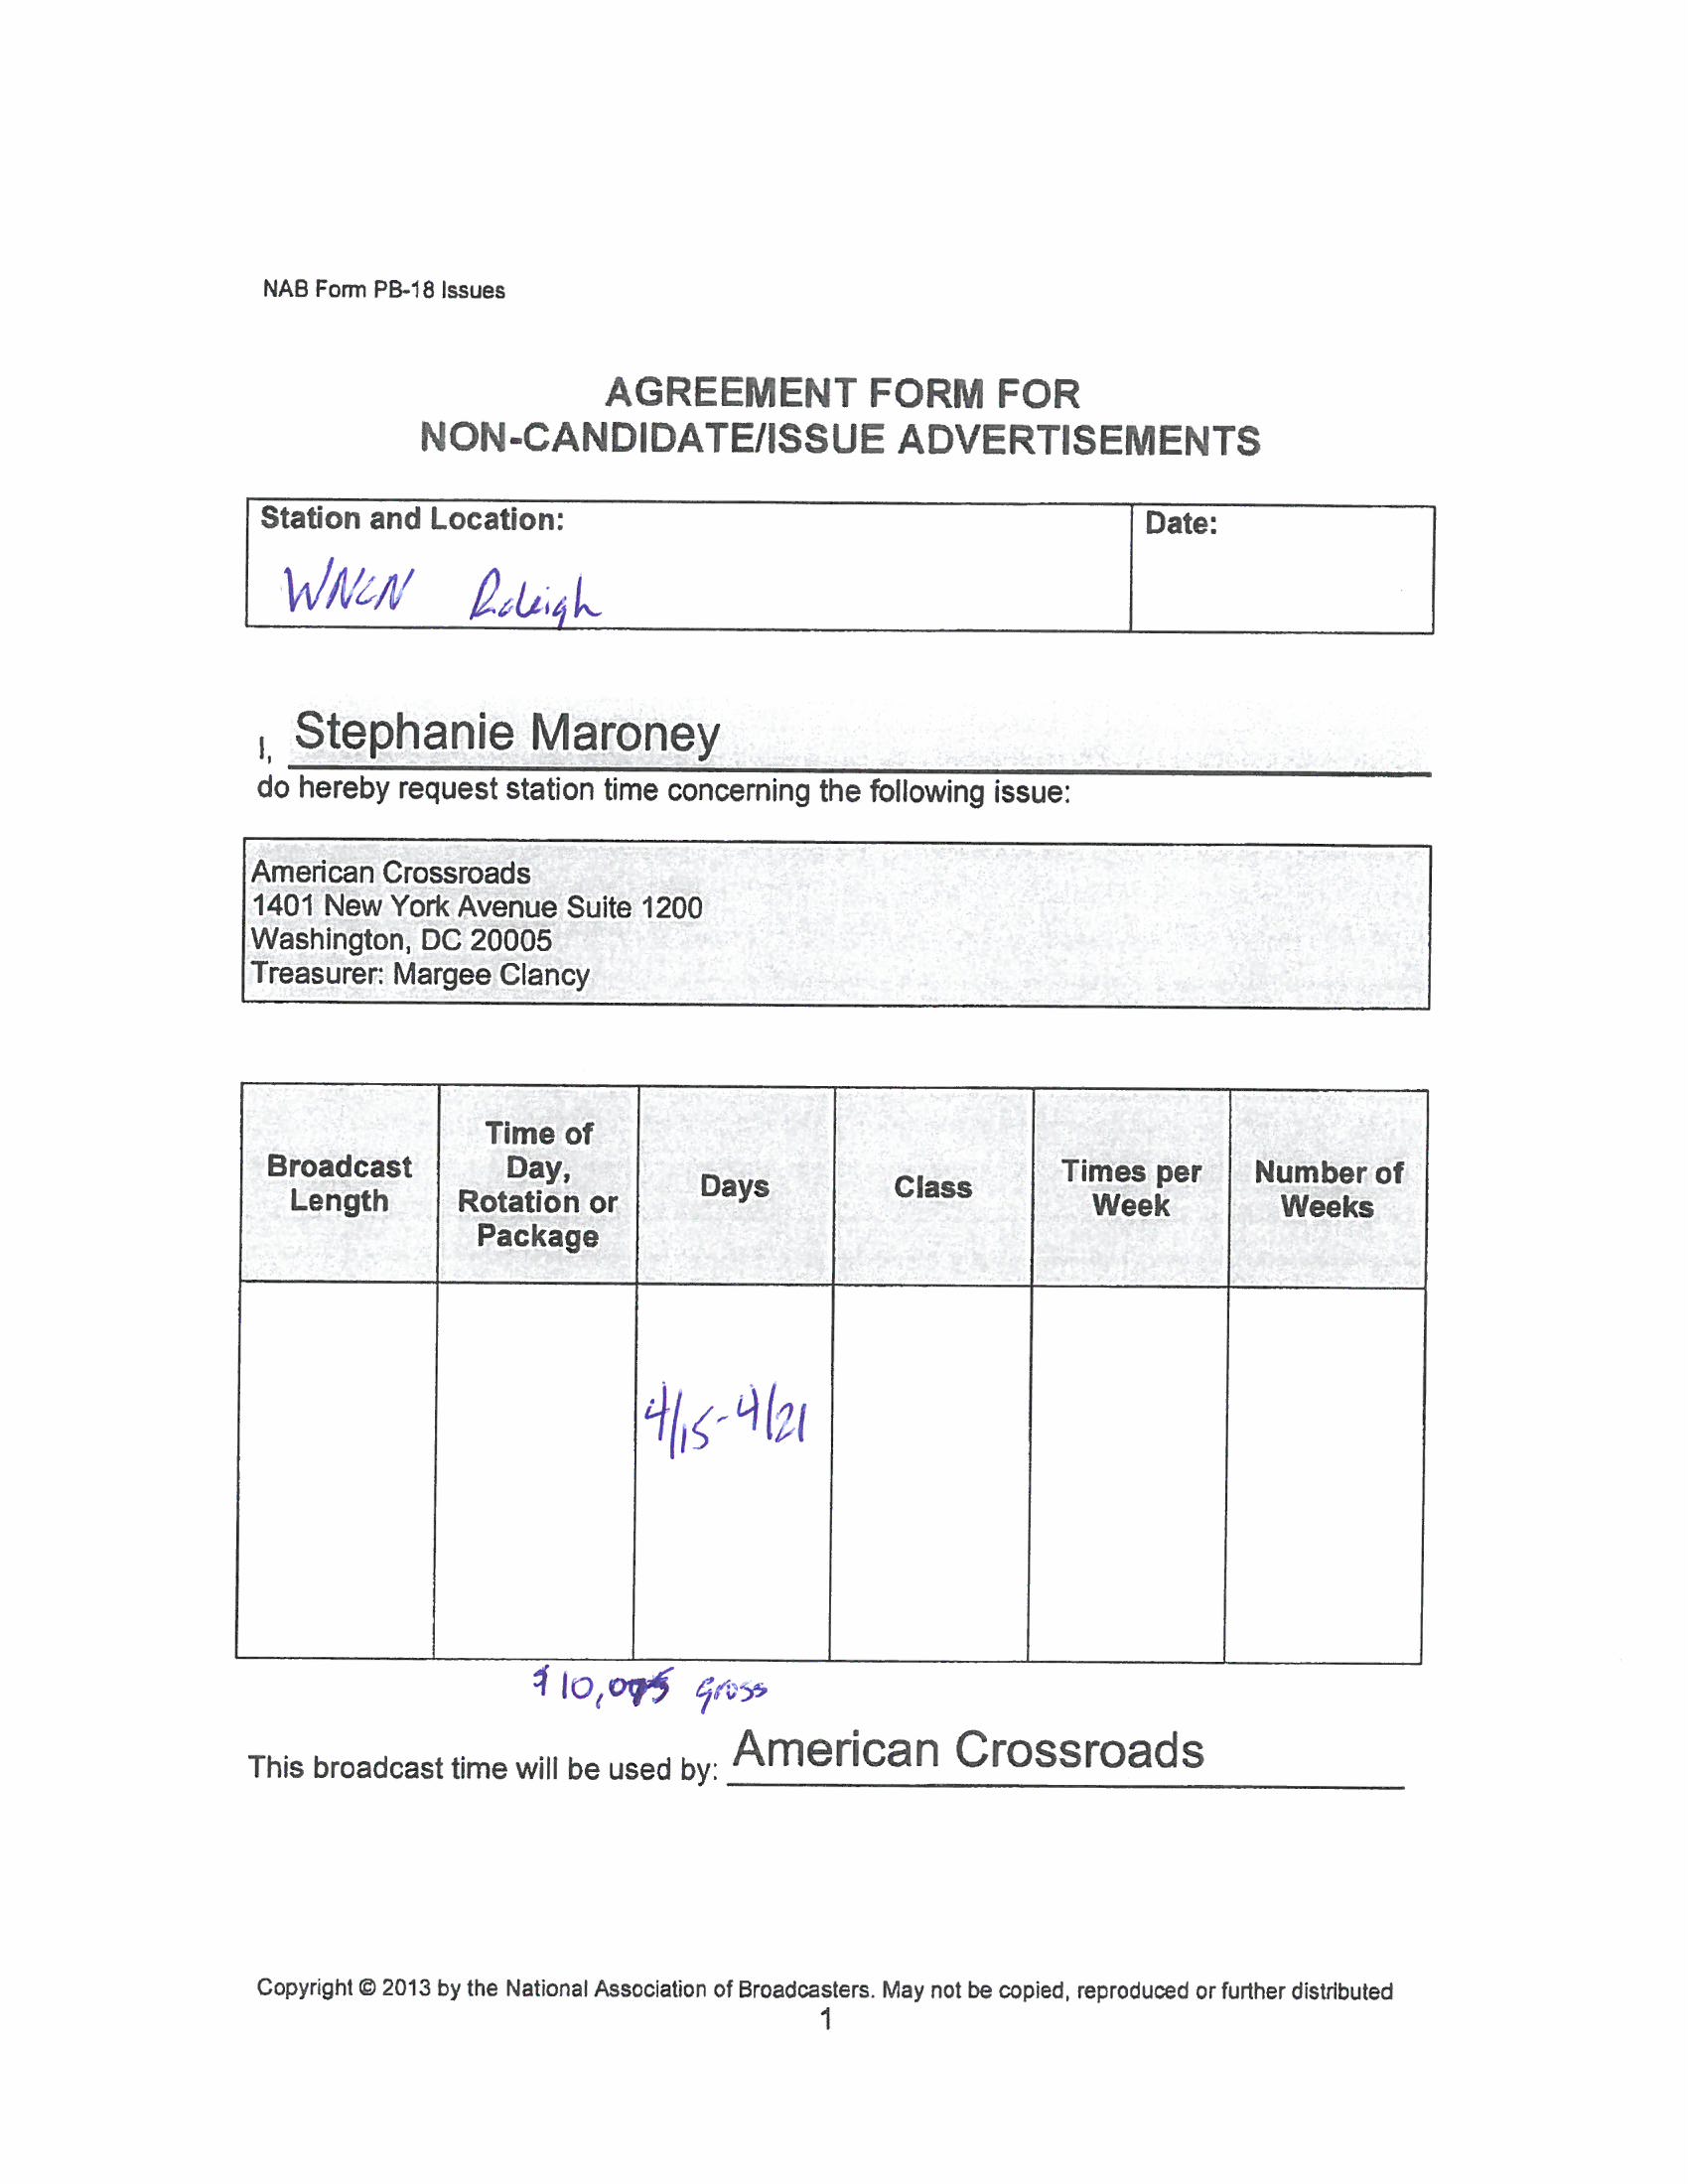 NAB Form PB-18 Issues
AGREEMENT FORM FOR
NON-CANDIDATE/ISSUE ADVERTISEMENTS
Station and Location:
Date:
WNCN Raleigh
I, Stephanie Maroney
do hereby request station time concerning the following issue:
American Crossroads
1401 New York Avenue Suite 1200
Washington, DC 20005
Treasurer: Margee Clancy
Broadcast Length
Time of Day, Rotation or Package
Days
Class
Times per Week
Number of Weeks
4/15-4/21
gross
This broadcast time will be used by: American Crossroads
Copyright © 2013 by the National Association of Broadcasters. May not be copied, reproduced or further distributed
1